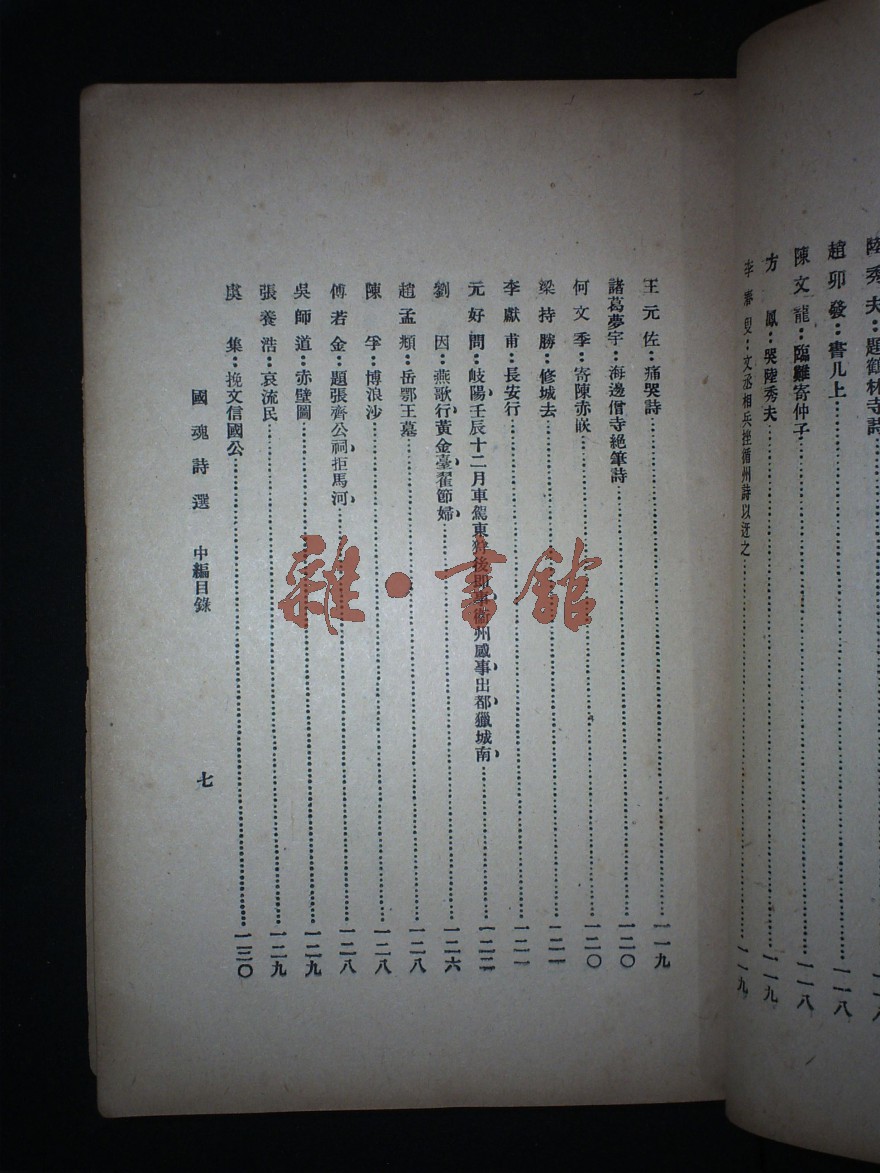 陸秀夫：題鶴林寺詩………一一八
趙卯發：書几上………一一八
陳文龍：臨難寄仲子………一一八
方　鳳：哭陸秀夫………一一九
李　叟：文丞相兵挫循州詩以迓之………一一九
王元佐：痛哭詩………一一九
諸葛夢宇：海邊僧寺絕筆詩………一二〇
何文季：寄陳赤嵌………一二〇
梁持勝：修城去………一二一
李獻甫：長安行………一二一
元好問：岐陽、壬辰十二月車駕東狩後即事、衞州感事、出都、獵城南、………一二二
劉　因：燕歌行、黃金臺、翟節婦、………一二六
趙孟頫：岳鄂王墓………一二八
陳　孚：博浪沙………一二八
傅若金：題張齊公祠、拒馬河、………一二八
吳師道：赤壁圖………一二九
張養浩：哀流民………一二九
虞　集：挽文信國公………一三〇
國魂詩選　中編目錄　七
雜·書館